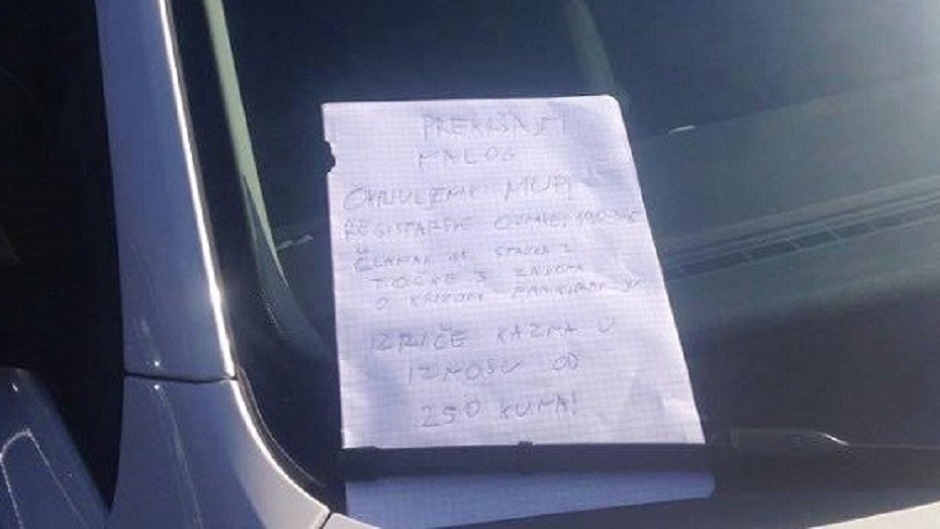 PREKRŠAJNI
NALOG
OKRIVLJENI MUP!
REGISTARSKE OZNAKE,
ČLANAK STAVKA 2
TOČKE 3 ZAKONA
O KRIVOM PARKIRANJU
IZRIČE KAZNA U
IZNOSU OD
250 KUNA!